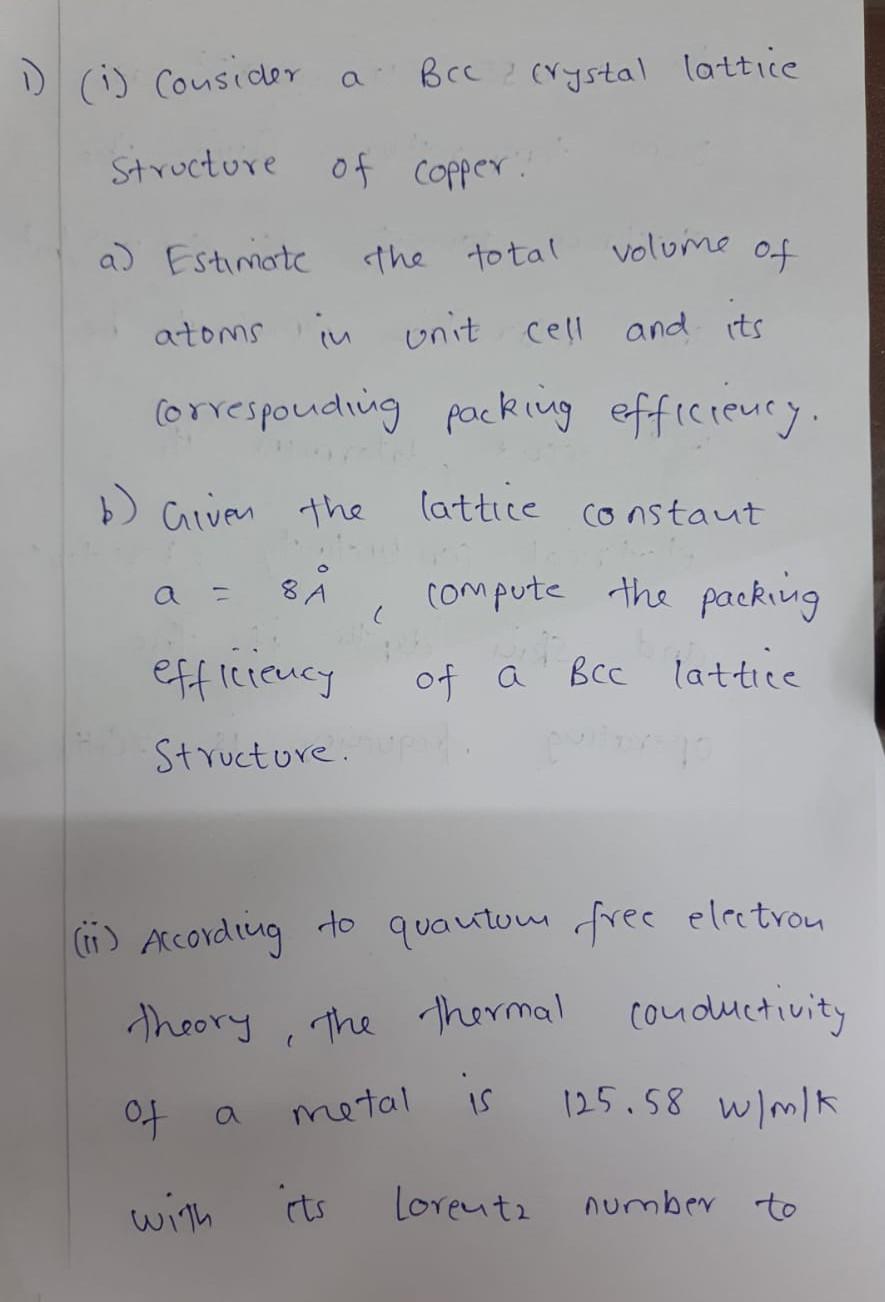 1) (i) Consider a BCC crystal lattice
structure of copper.
a) Estimate the total volume of
atoms in unit cell and its
corresponding packing efficiency.
b) Given the lattice constant
a = 8Å, compute the packing
efficiency of a BCC lattice
structure.
(ii) According to quantum free electron
theory, the thermal conductivity
of a metal is 125.58 W/m/K
with its Lorentz number to